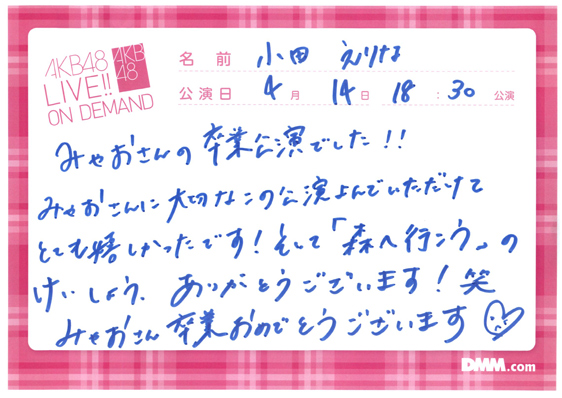 AKB48
LIVE!!
ON DEMAND
AKB
48
名前 小田 えりな
公演日 4月 14日 18:30 公演
みゃおさんの卒業公演でした!!
みゃおさんに大切なこの公演よんでいただけて
とても嬉しかったです!そして「森へ行こう」の
けいしょう、ありがとうございます!笑
みゃおさん卒業おめでとうございます
DMM.com